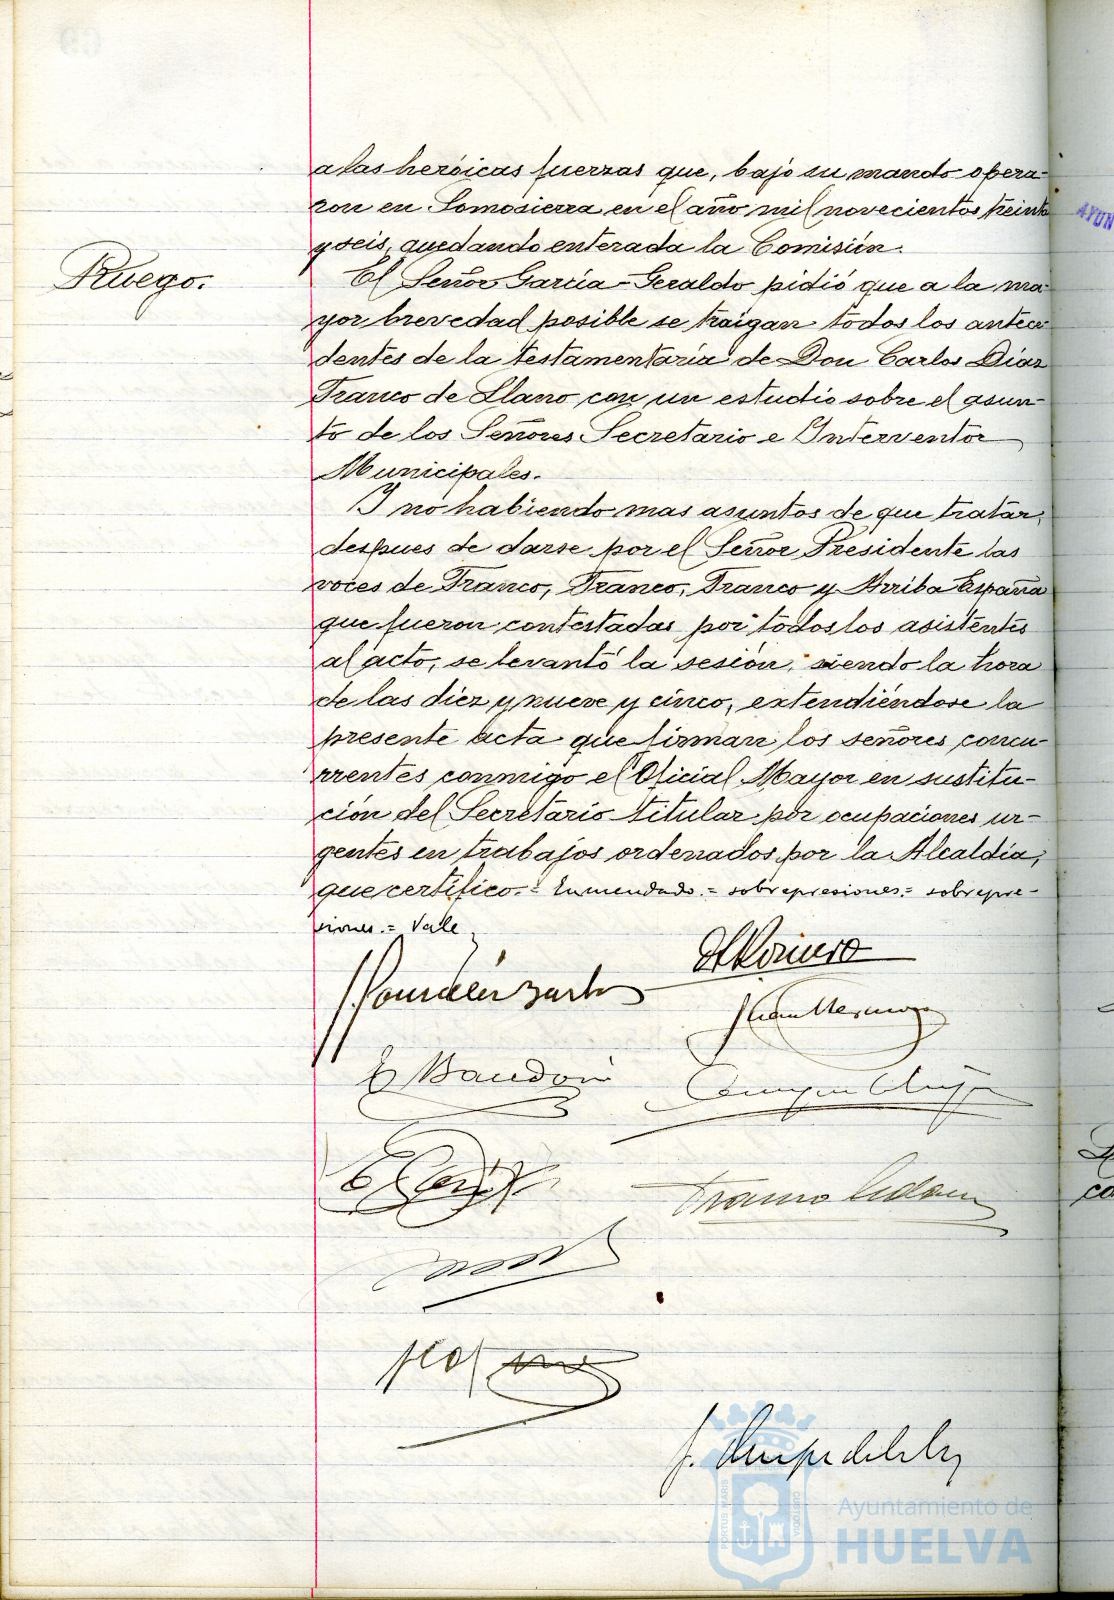 a las heróicas fuerzas que, bajo su mando opera-
ron en Somosierra en el año mil novecientos treinta
y seis, quedando enterada la Comisión.
Ruego.
El Señor García-Geraldo pidió que a la ma-
yor brevedad posible se traigan todos los antece-
dentes de la testamentaría de Don Carlos Díaz
Franco de Llano con un estudio sobre el asun-
to de los Señores Secretario e Interventor
Municipales.
Y no habiendo mas asuntos de que tratar,
despues de darse por el Señor Presidente las
voces de Franco, Franco, Franco y Arriba España
que fueron contestadas por todos los asistentes
al acto, se levantó la sesión, siendo la hora
de las diez y nueve y cinco, extendiéndose la
presente acta que firman los señores concu-
rrentes conmigo el Oficial Mayor en sustitu-
ción del Secretario titular por ocupaciones ur-
gentes en trabajos ordenados por la Alcaldía,
que certifico.= Enmendado.= sobrepresiones.= sobrepre-
siones.= Vale
E Baudón
AYUN
PORTUS MARIS
CUSTODIA
Ayuntamiento de
HUELVA